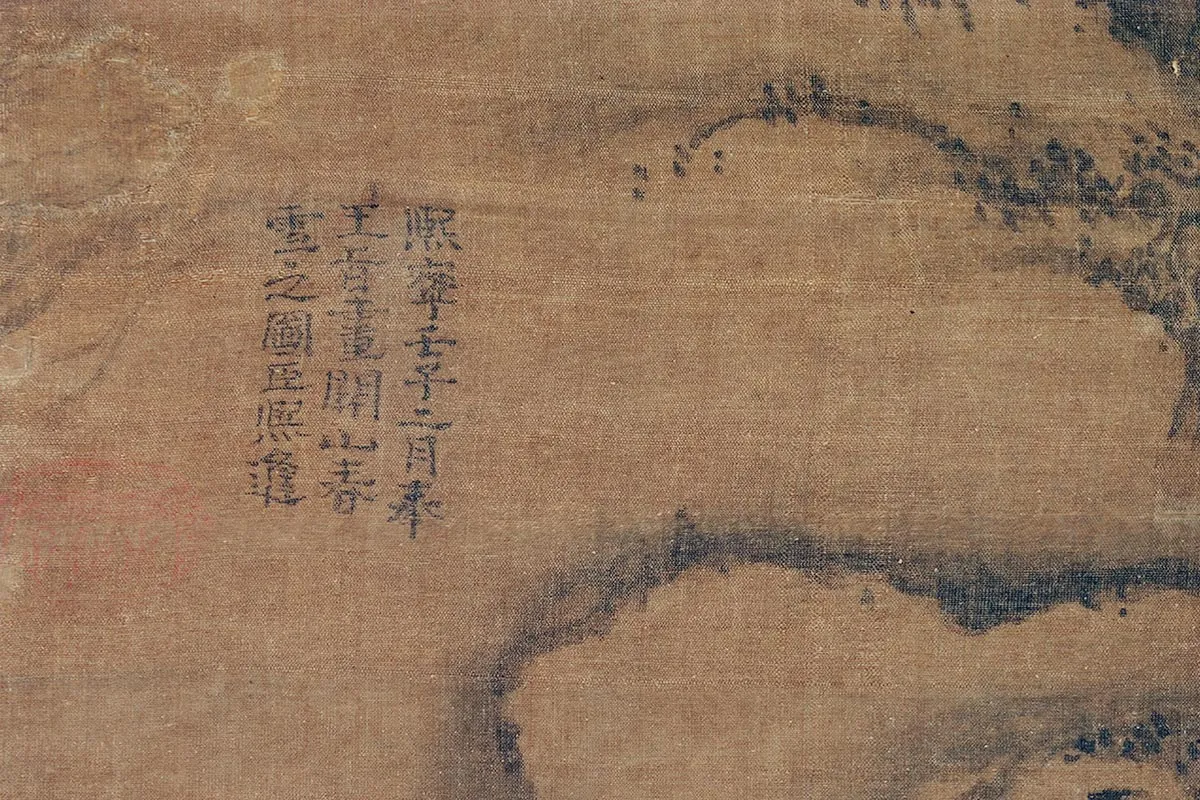 熙寧壬子二月奉
王旨畫關山春
雪之圖臣熙進